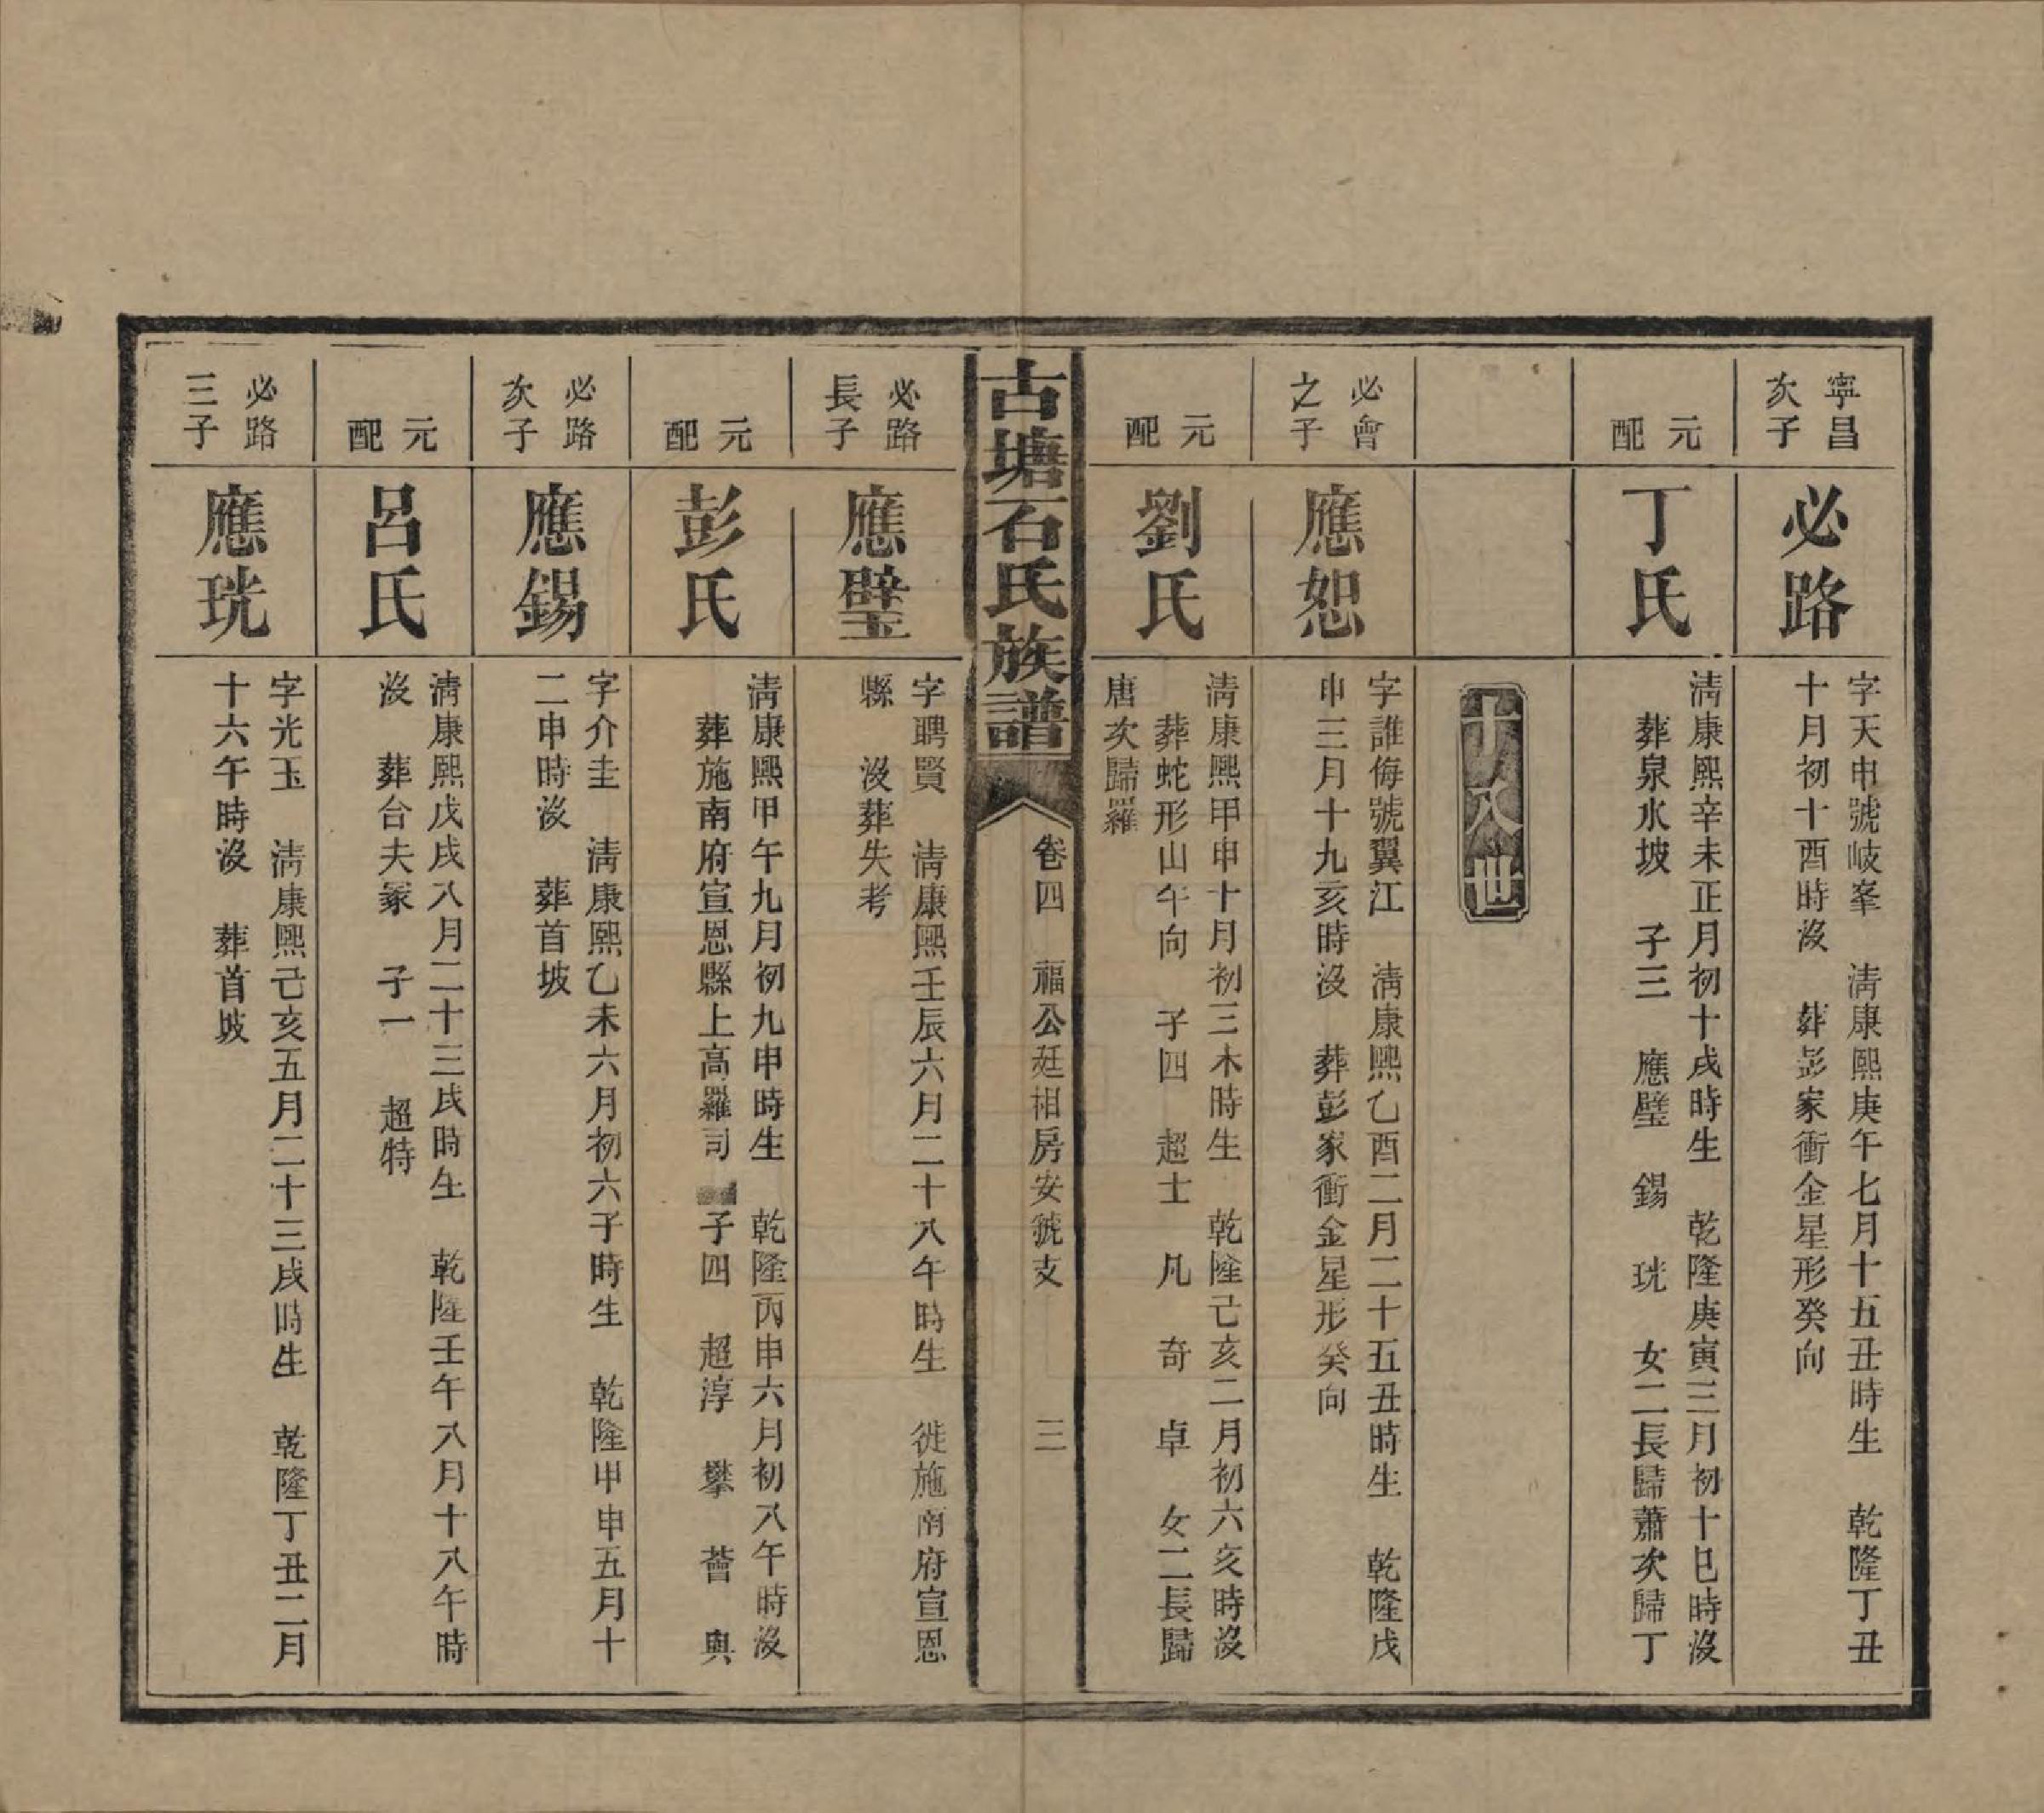 寧昌
次子
必路
字天申號岐峯　淸康熙庚午七月十五丑時生　乾隆丁丑
十月初十酉時沒　葬彭家衝金星形癸向
元
配
丁氏
淸康熙辛未正月初十戌時生　乾隆庚寅三月初十巳時沒
葬泉水坡　子三　應璧　錫　珖　女二長歸蕭次歸丁
十八世
必會
之子
應恕
字誰侮號翼江　淸康熙乙酉二月二十五丑時生　乾隆戊
申三月十九亥時沒　葬彭家衝金星形癸向
元
配
劉氏
淸康熙甲申十月初三木時生　乾隆己亥二月初六亥時沒
葬蛇形山午向　子四　超士　凡　奇　卓　女二長歸
唐次歸羅
古塘石氏族譜
卷四　福公廷相房安號支　三
必路
長子
應璧
字聘賢　淸康熙壬辰六月二十八午時生　徙施南府宣恩
縣　沒葬失考
元
配
彭氏
淸康熙甲午九月初九申時生　乾隆丙申六月初八午時沒
葬施南府宣恩縣上高羅司　子四　超淳　攀　薈　輿
必路
次子
應錫
字介圭　淸康熙乙未六月初六子時生　乾隆甲申五月十
二申時沒　葬首坡
元
配
呂氏
淸康熙戊戌八月二十三戌時生　乾隆壬午八月十八午時
沒　葬台夫冢　子一　超特
必路
三子
應珖
字光玉　淸康熙己亥五月二十三戌時生　乾隆丁丑二月
十六午時沒　葬首坡